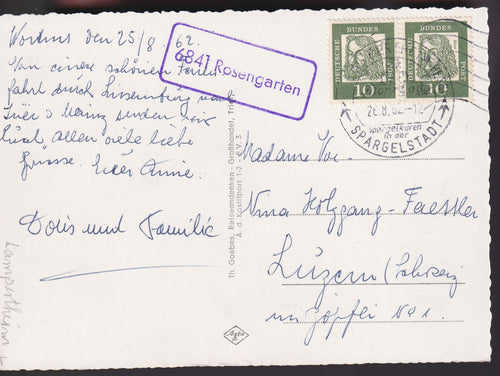 Worms den 25/8. 62.
Von einer schönen Ferien
fahrt durch Luxemburg und
Trier & Mainz senden wir
Euch allen viele liebe
Grüsse. Euer Anne.
Doris und Familie
6841 Rosengarten
DEUTSCHE BUNDESPOST
10
DEUTSCHE BUNDESPOST
10
26.8.62-12
Spargelkuren
in der
SPARGELSTADT
Th. Goebes, Reiseandenken - Großhandel, Trier
A. d. Kastilport 1-2
Madame Vve.
Nina Holzgang-Faessler
Luzern (Schweiz
im Zöpfli No 1.
Agfa
Lampertheim